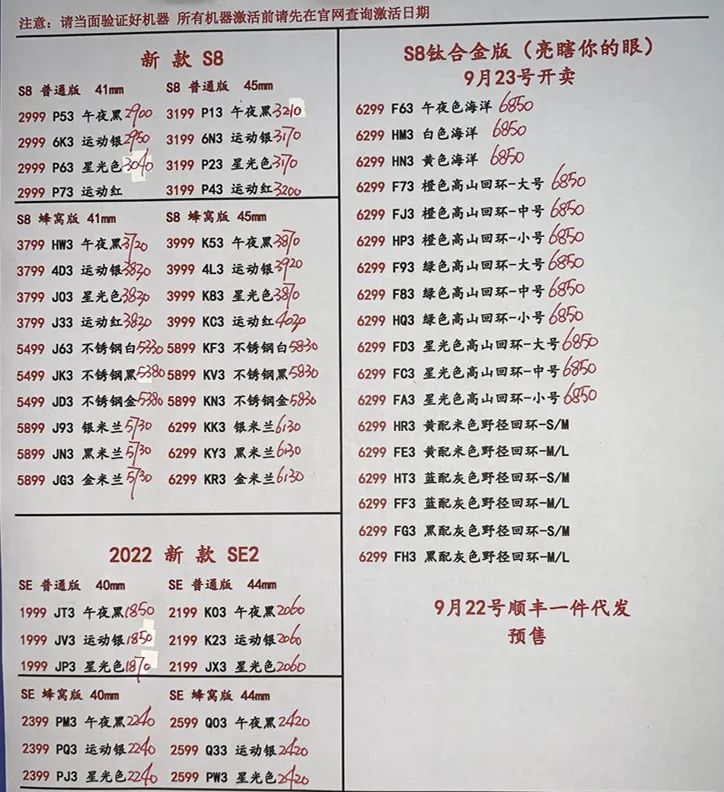 注意：请当面验证好机器 所有机器激活前请先在官网查询激活日期
新 款 S8
S8 普通版 41mm
2999 P53 午夜黑 2900
2999 6K3 运动银 2950
2999 P63 星光色 3040
2999 P73 运动红
S8 普通版 45mm
3199 P13 午夜黑 3210
3199 6N3 运动银 3170
3199 P23 星光色 3170
3199 P43 运动红 3200
S8 蜂窝版 41mm
3799 HW3 午夜黑 3720
3799 4D3 运动银 3820
3799 J03 星光色 3820
3799 J33 运动红 3820
5499 J63 不锈钢白 5330
5499 JK3 不锈钢黑 5380
5499 JD3 不锈钢金 5380
5899 J93 银米兰 5730
5899 JN3 黑米兰 5730
5899 JG3 金米兰 5730
S8 蜂窝版 45mm
3999 K53 午夜黑 3870
3999 4L3 运动银 3920
3999 K83 星光色 3870
3999 KC3 运动红 4020
5899 KF3 不锈钢白 5830
5899 KV3 不锈钢黑 5830
5899 KN3 不锈钢金 5830
6299 KK3 银米兰 6130
6299 KY3 黑米兰 6130
6299 KR3 金米兰 6130
2022 新 款 SE2
SE 普通版 40mm
1999 JT3 午夜黑 1850
1999 JV3 运动银 1850
1999 JP3 星光色 1870
SE 普通版 44mm
2199 K03 午夜黑 2060
2199 K23 运动银 2060
2199 JX3 星光色 2060
SE 蜂窝版 40mm
2399 PM3 午夜黑 2240
2399 PQ3 运动银 2240
2399 PJ3 星光色 2240
SE 蜂窝版 44mm
2599 Q03 午夜黑 2420
2599 Q33 运动银 2420
2599 PW3 星光色 2420
S8钛合金版（亮瞎你的眼）
9月23号开卖
6299 F63 午夜色海洋 6850
6299 HM3 白色海洋 6850
6299 HN3 黄色海洋 6850
6299 F73 橙色高山回环-大号 6850
6299 FJ3 橙色高山回环-中号 6850
6299 HP3 橙色高山回环-小号 6850
6299 F93 绿色高山回环-大号 6850
6299 F83 绿色高山回环-中号 6850
6299 HQ3 绿色高山回环-小号 6850
6299 FD3 星光色高山回环-大号 6850
6299 FC3 星光色高山回环-中号 6850
6299 FA3 星光色高山回环-小号 6850
6299 HR3 黄配米色野径回环-S/M
6299 FE3 黄配米色野径回环-M/L
6299 HT3 蓝配灰色野径回环-S/M
6299 FF3 蓝配灰色野径回环-M/L
6299 FG3 黑配灰色野径回环-S/M
6299 FH3 黑配灰色野径回环-M/L
9月22号顺丰一件代发
预售